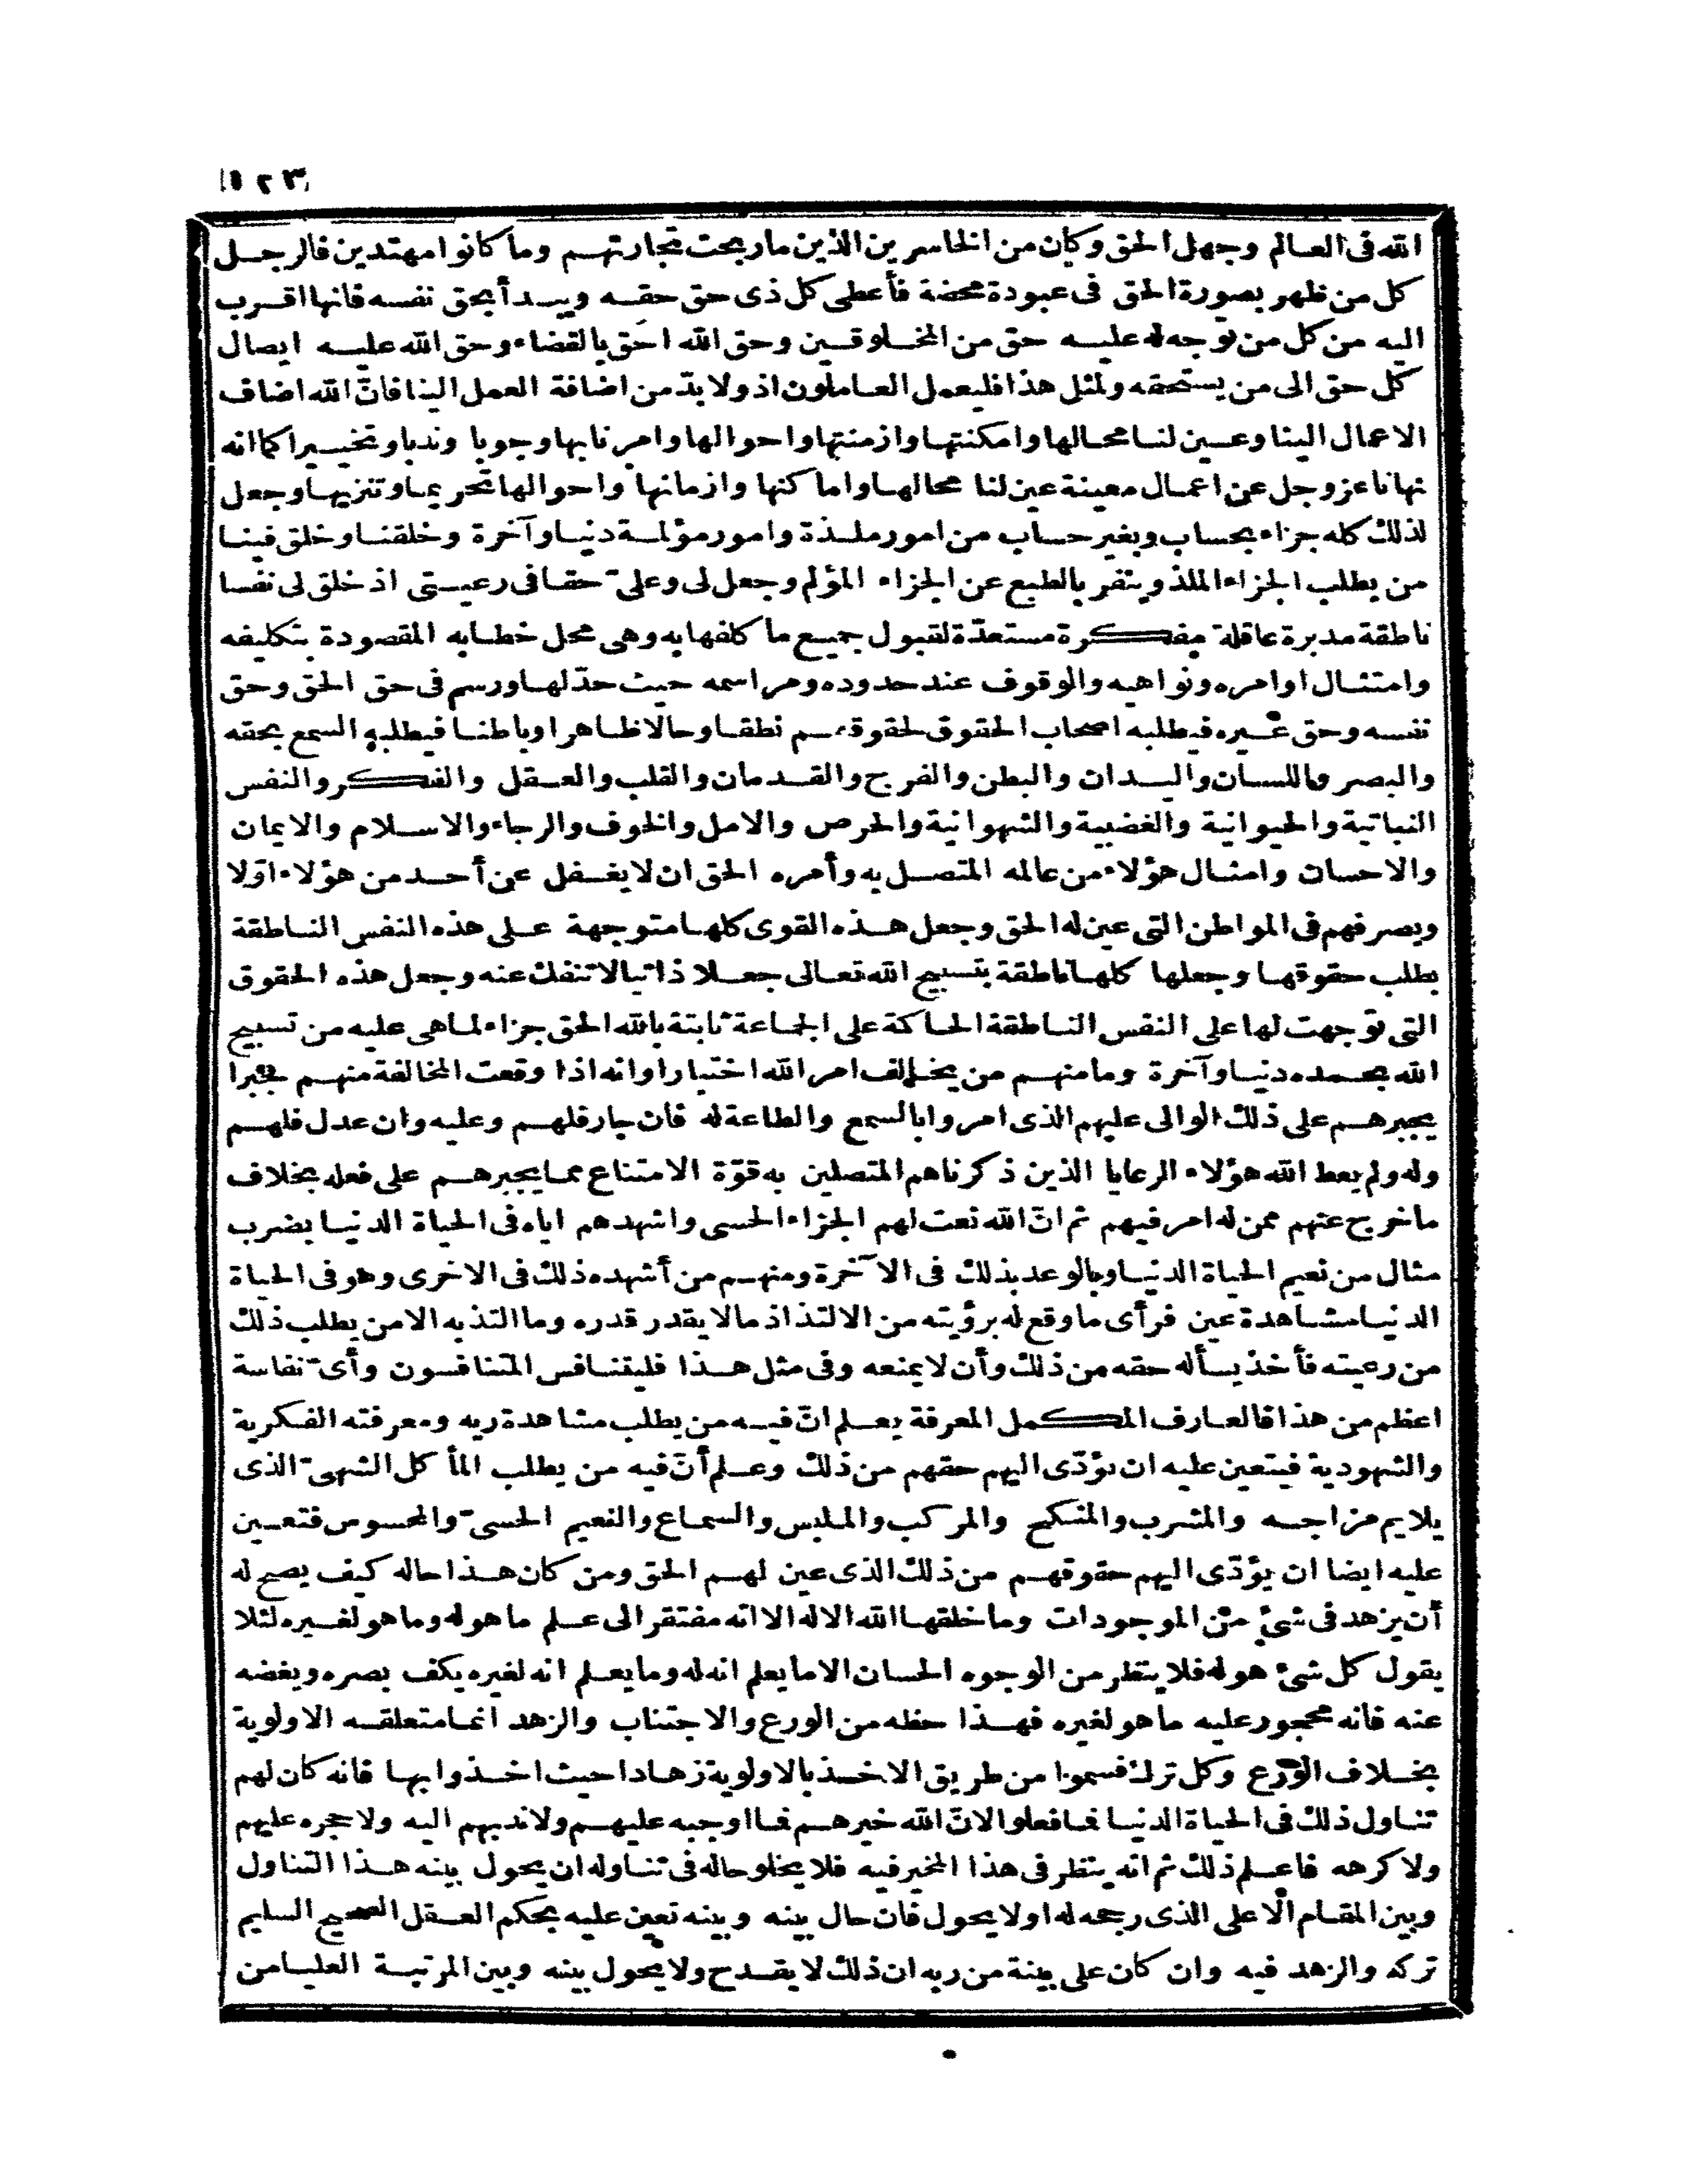 ١٢٣
الله فى العالم وجهل الحق وكان من الخاسرين الذين ماربحت تجارتهم وما كانوا مهتدين فالرجل
كل من ظهر بصورة الحق فى عبودة محضة فأعطى كل ذى حق حقه ويبدأ بحق نفسه فانها اقرب
اليه من كل من توجه له عليه حق من المخلوقين وحق الله احق بالقضاء وحق الله عليه ايصال
كل حق الى من يستحقه ولمثل هذا فليعمل العاملون اذ ولا بدّ من اضافة العمل الينا فانّ الله اضاف
الاعمال الينا وعين لنا محالها وامكنتها وازمنتها واحوالها وامرنا بها وجوبا وندبا وتخييرا كما انه
نهانا عز وجل عن اعمال معينة عين لنا محالها واما كنها وازمانها واحوالها تحريما وتنزيها وجعل
لذلك كله جزاء بحساب وبغير حساب من امور ملذة وامور مؤلمة دنيا وآخرة وخلقنا وخلق فينا
من يطلب الجزاء الملذ وينفر بالطبع عن الجزاء المؤلم وجعل لى وعلىّ حقا فى رعيتى اذ خلق لى نفسا
ناطقة مدبرة عاقلة مفكرة مستعدّة لقبول جميع ما كلفها به وهى محل خطابه المقصودة بتكليفه
وامتثال اوامره ونواهيه والوقوف عند حدوده ومراسمه حيث حدّ لها ورسم فى حق الحق وحق
نفسه وحق غيره فيطلبه اصحاب الحقوق بحقوقهم نطقا وحالا ظاهرا وباطنا فيطلبه السمع بحقه
والبصر واللسان واليدان والبطن والفرج والقدمان والقلب والعقل والفكر والنفس
النباتية والحيوانية والغضبية والشهوانية والحرص والامل والخوف والرجاء والاسلام والايمان
والاحسان وامثال هؤلاء من عالمه المتصل به وأمره الحق ان لا يغفل عن أحد من هؤلاء اوّلا
ويصرفهم فى المواطن التى عين له الحق وجعل هذه القوى كلها متوجهة على هذه النفس الناطقة
بطلب حقوقها وجعلها كلها ناطقة بتسبيح الله تعالى جعلا ذاتيا لا تنفك عنه وجعل هذه الحقوق
التى توجهت لها على النفس الناطقة الحاكة على الجماعة ثابتة بالله الحق جزاء لما هى عليه من تسبيح
الله بحمده دنيا وآخرة وما منهم من يخالف امر الله اختيارا وانه اذا وقعت المخالفة منهم فجبرا
يجبرهم على ذلك الوالى عليهم الذى امروا بالسمع والطاعة له فان جار فلهم وعليه وان عدل فلهم
وله ولم يعط الله هؤلاء الرعايا الذين ذكرناهم المتصلين به قوّة الامتناع مما يجبرهم على فعله بخلاف
ماخرج عنهم ممن له امر فيهم ثم انّ الله نعت لهم الجزاء الحسى واشهدهم اياه فى الحياة الدنيا بضرب
مثال من نعيم الحياة الدنيا وبالوعد بذلك فى الآخرة ومنهم من أشهده ذلك فى الاخرى وهو فى الحياة
الدنيا مشاهدة عين فرأى ما وقع له برؤيته من الالتذاذ مالا يقدر قدره وما التذ به الا من يطلب ذلك
من رعيته فأخذ يسأله حقه من ذلك وأن لا يمنعه وفى مثل هذا فليتنافس المتنافسون وأىّ نفاسة
اعظم من هذا فالعارف المكمل المعرفة يعلم انّ فيه من يطلب مشاهدة ربه ومعرفته الفكرية
والشهودية فيتعين عليه ان يؤدّى اليهم حقهم من ذلك وعلم أنّ فيه من يطلب المأكل الشهىّ الذى
يلايم مزاجه والمشرب والمنكح والمركب والملبس والسماع والنعيم الحسىّ والمحسوس فتعين
عليه ايضا ان يؤدّى اليهم حقوقهم من ذلك الذى عين لهم الحق ومن كان هذا حاله كيف يصح له
أن يزهد فى شئ من الموجودات وما خلقها الله الا له الا انه مفتقر الى علم ما هو له وما هو لغيره لئلا
يقول كل شئ هو له فلا ينظر من الوجوه الحسان الا ما يعلم انه له وما يعلم انه لغيره يكف بصره ويغضه
عنه فانه محجور عليه ما هو لغيره فهذا حظه من الورع والاجتناب والزهد انما متعلقه الاولوية
بخلاف الورع وكل ترك فسموا من طريق الاخذ بالاولوية زهادا حيث اخذوا بها فانه كان لهم
تناول ذلك فى الحياة الدنيا فما فعلوا لانّ الله خيرهم فما اوجبه عليهم ولا ندبهم اليه ولا حجره عليهم
ولا كرهه فاعلم ذلك ثم انه ينظر فى هذا المخير فيه فلا يخلو حاله فى تناوله ان يحول بينه هذا التناول
وبين المقام الاعلى الذى رجحه له اولا يحول فان حال بينه وبينه تعين عليه بحكم العقل الصحيح السليم
تركه والزهد فيه وان كان على بينة من ربه ان ذلك لا يقدح ولا يحول بينه وبين المرتبة العليا من